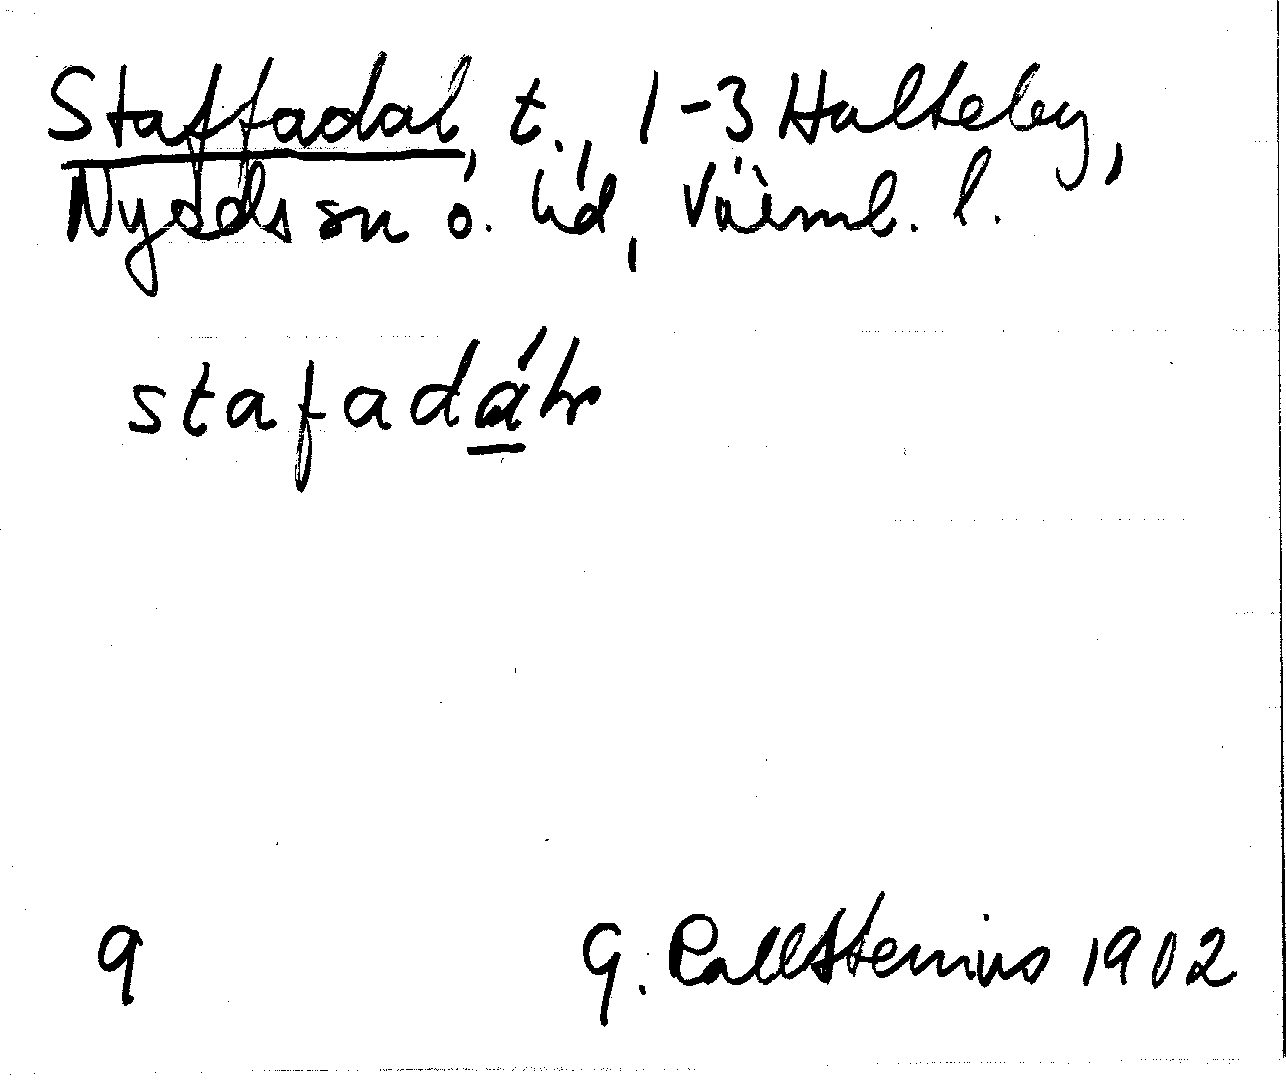 Staffadal, t., 1-3 Hulteby,
Nyeds sn o. hd, Värml. l.
stafadáḷṣ
9 G. Kallstenius 1902